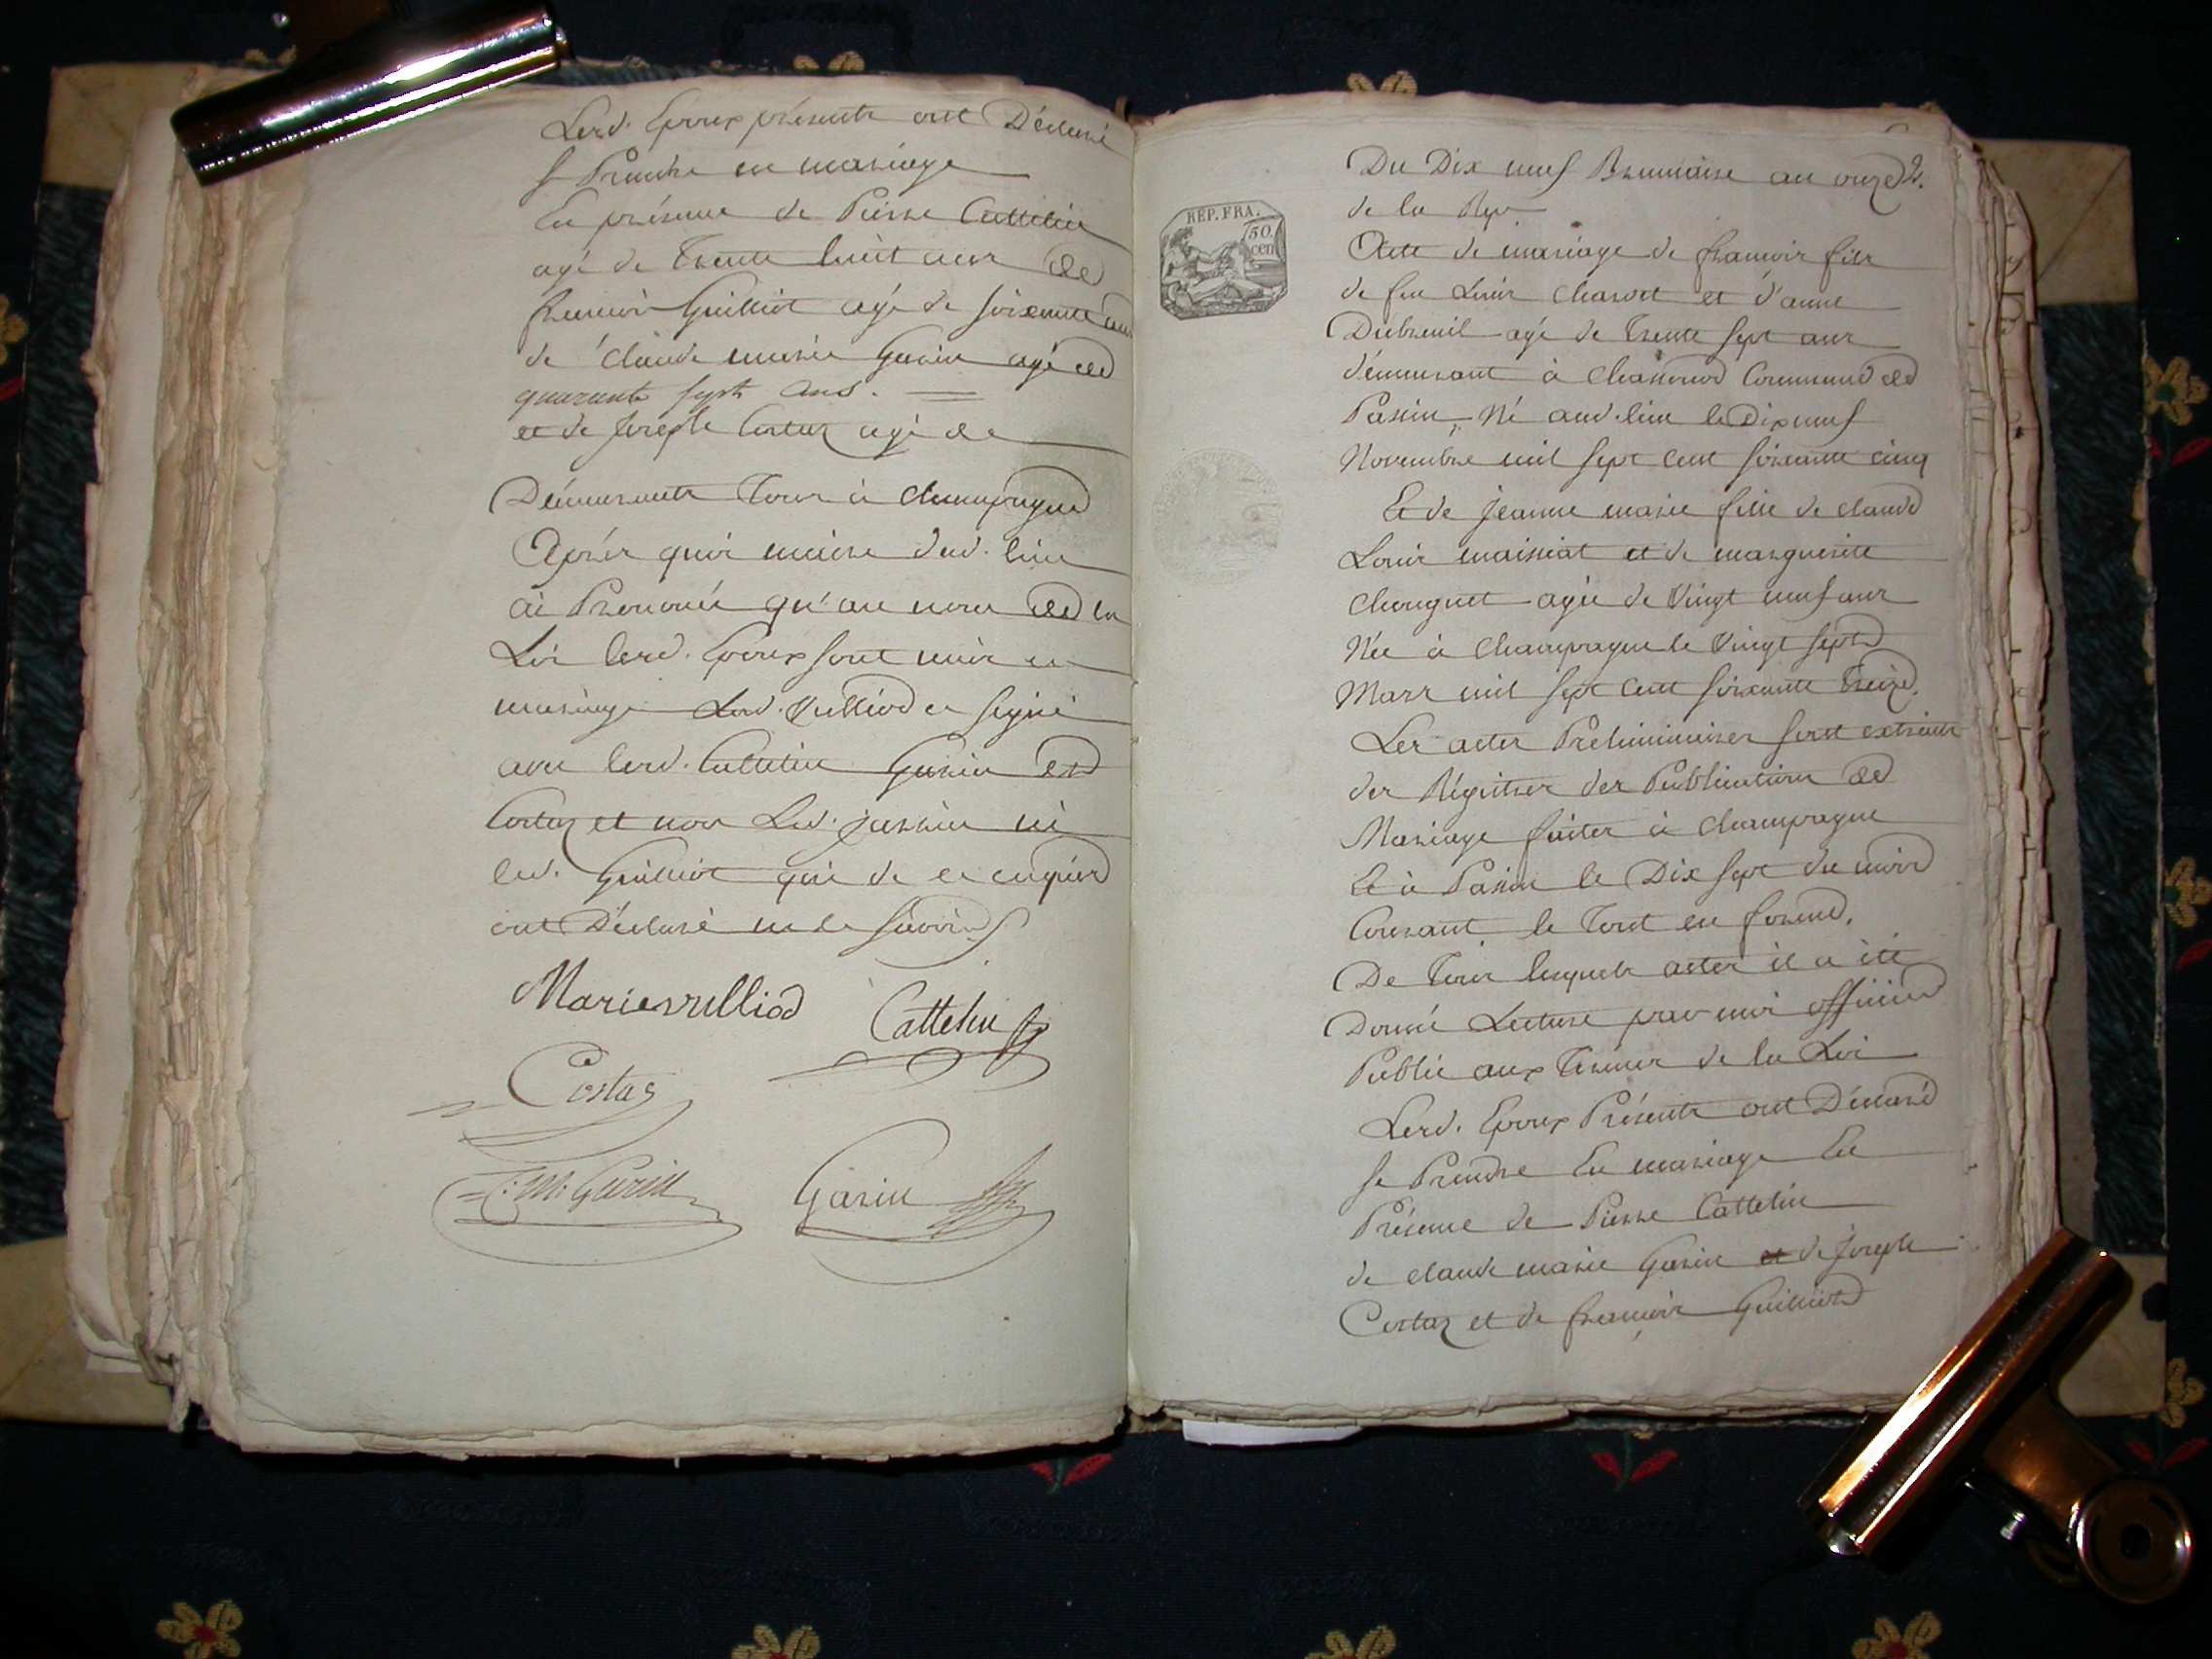 Lesd. Epoux présents ont Déclaré
se Prendre en mariage
En présence de Pierre Cattelin
agé de Trente huit ans de
francois Guilliot agé de soixante ans
de Claude marie Garin agé de
quarante sept ans.
et de Joseph Costaz agé de
Démeurants Tous à champagne
Après quoi maire dud. lieu
ai Prononcé qu'au nom de la
Loi lesd. Epoux sont unis en
mariage Lad. Vulliod a signé
avec lesd. Cattelin Garin et
Costaz et non Led. ni
led. Guilliot qui de ce enquis
ont Déclaré ne le sçavoir
Marie vulliod
Cattelin
Costaz
C: M: Garin
Garin
Du Dix neuf Brumaire an onze
2.
de la Rep
REP. FRA.
50.
cen
Acte de mariage de francois fils
de feu Louis Charvet et d'anne
Dubreuil agé de Trente sept ans
démeurant à Chassonod Commune de
Passin, Né aud. lieu le Dix neuf
Novembre mil sept cent soixante cinq
Et de Jeanne marie fille de claude
Louis maissiat et de marguerite
Chonguet agée de Vingt neuf ans
Née à Champagne le Vingt sept
Mars mil sept cent soixante Treize.
Les actes Préliminaires sont extraits
des Régistres des Publications de
Mariage faites à Champagne
et à Passin le Dix sept du mois
Courant le Tout en forme.
De Tous lesquels actes il a été
Donné Lecture par moi officier
Public aux Termes de la Loi
Lesd. Epoux Présents ont Déclaré
se Prendre En mariage En
Présence de Pierre Cattelin
de claude marie Garin et de Joseph
Costaz et de francois Guilliot